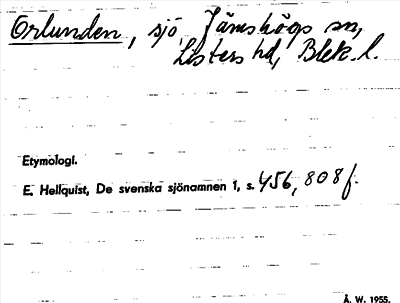 Orlunden, sjö, Jämshögs sn,
Listers hd, Blek. l.
Etymologi.
E. Hellquist, De svenska sjönamnen 1, s. 456, 808 f.
Å. W. 1955.